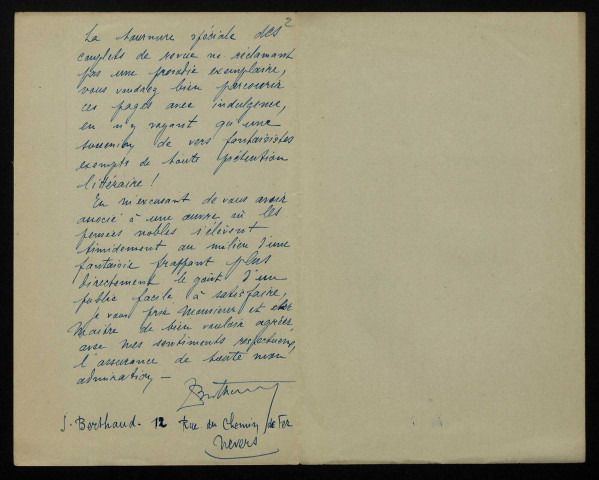 2
La tournure spéciale des
couplets de revue ne réclamant
pas une prosodie exemplaire,
vous voudrez bien parcourir
ces pages avec indulgence,
en n'y voyant qu'une
de vers fantaisistes
exempts de toute prétention
littéraire !
En m'excusant de vous avoir
associé à une œuvre où les
pensées nobles s'élèvent
timidement au milieu d'une
fantaisie frappant plus
directement le goût d'un
public facile à satisfaire,
je vous prie Monsieur et cher
Maître de bien vouloir agréer
avec mes sentiments respectueux,
l'assurance de toute mon
admiration —
Berthaud
J. Berthaud - 12 Rue du Chemin de Fer
Nevers